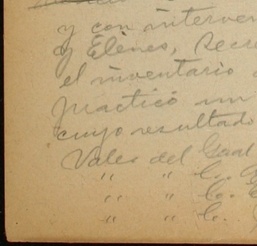 y con interven
y Elenes, Secre
el inventario
practicó un
cuyo resultado
Vales del Gral
" " C.
" " Co.
" " C.